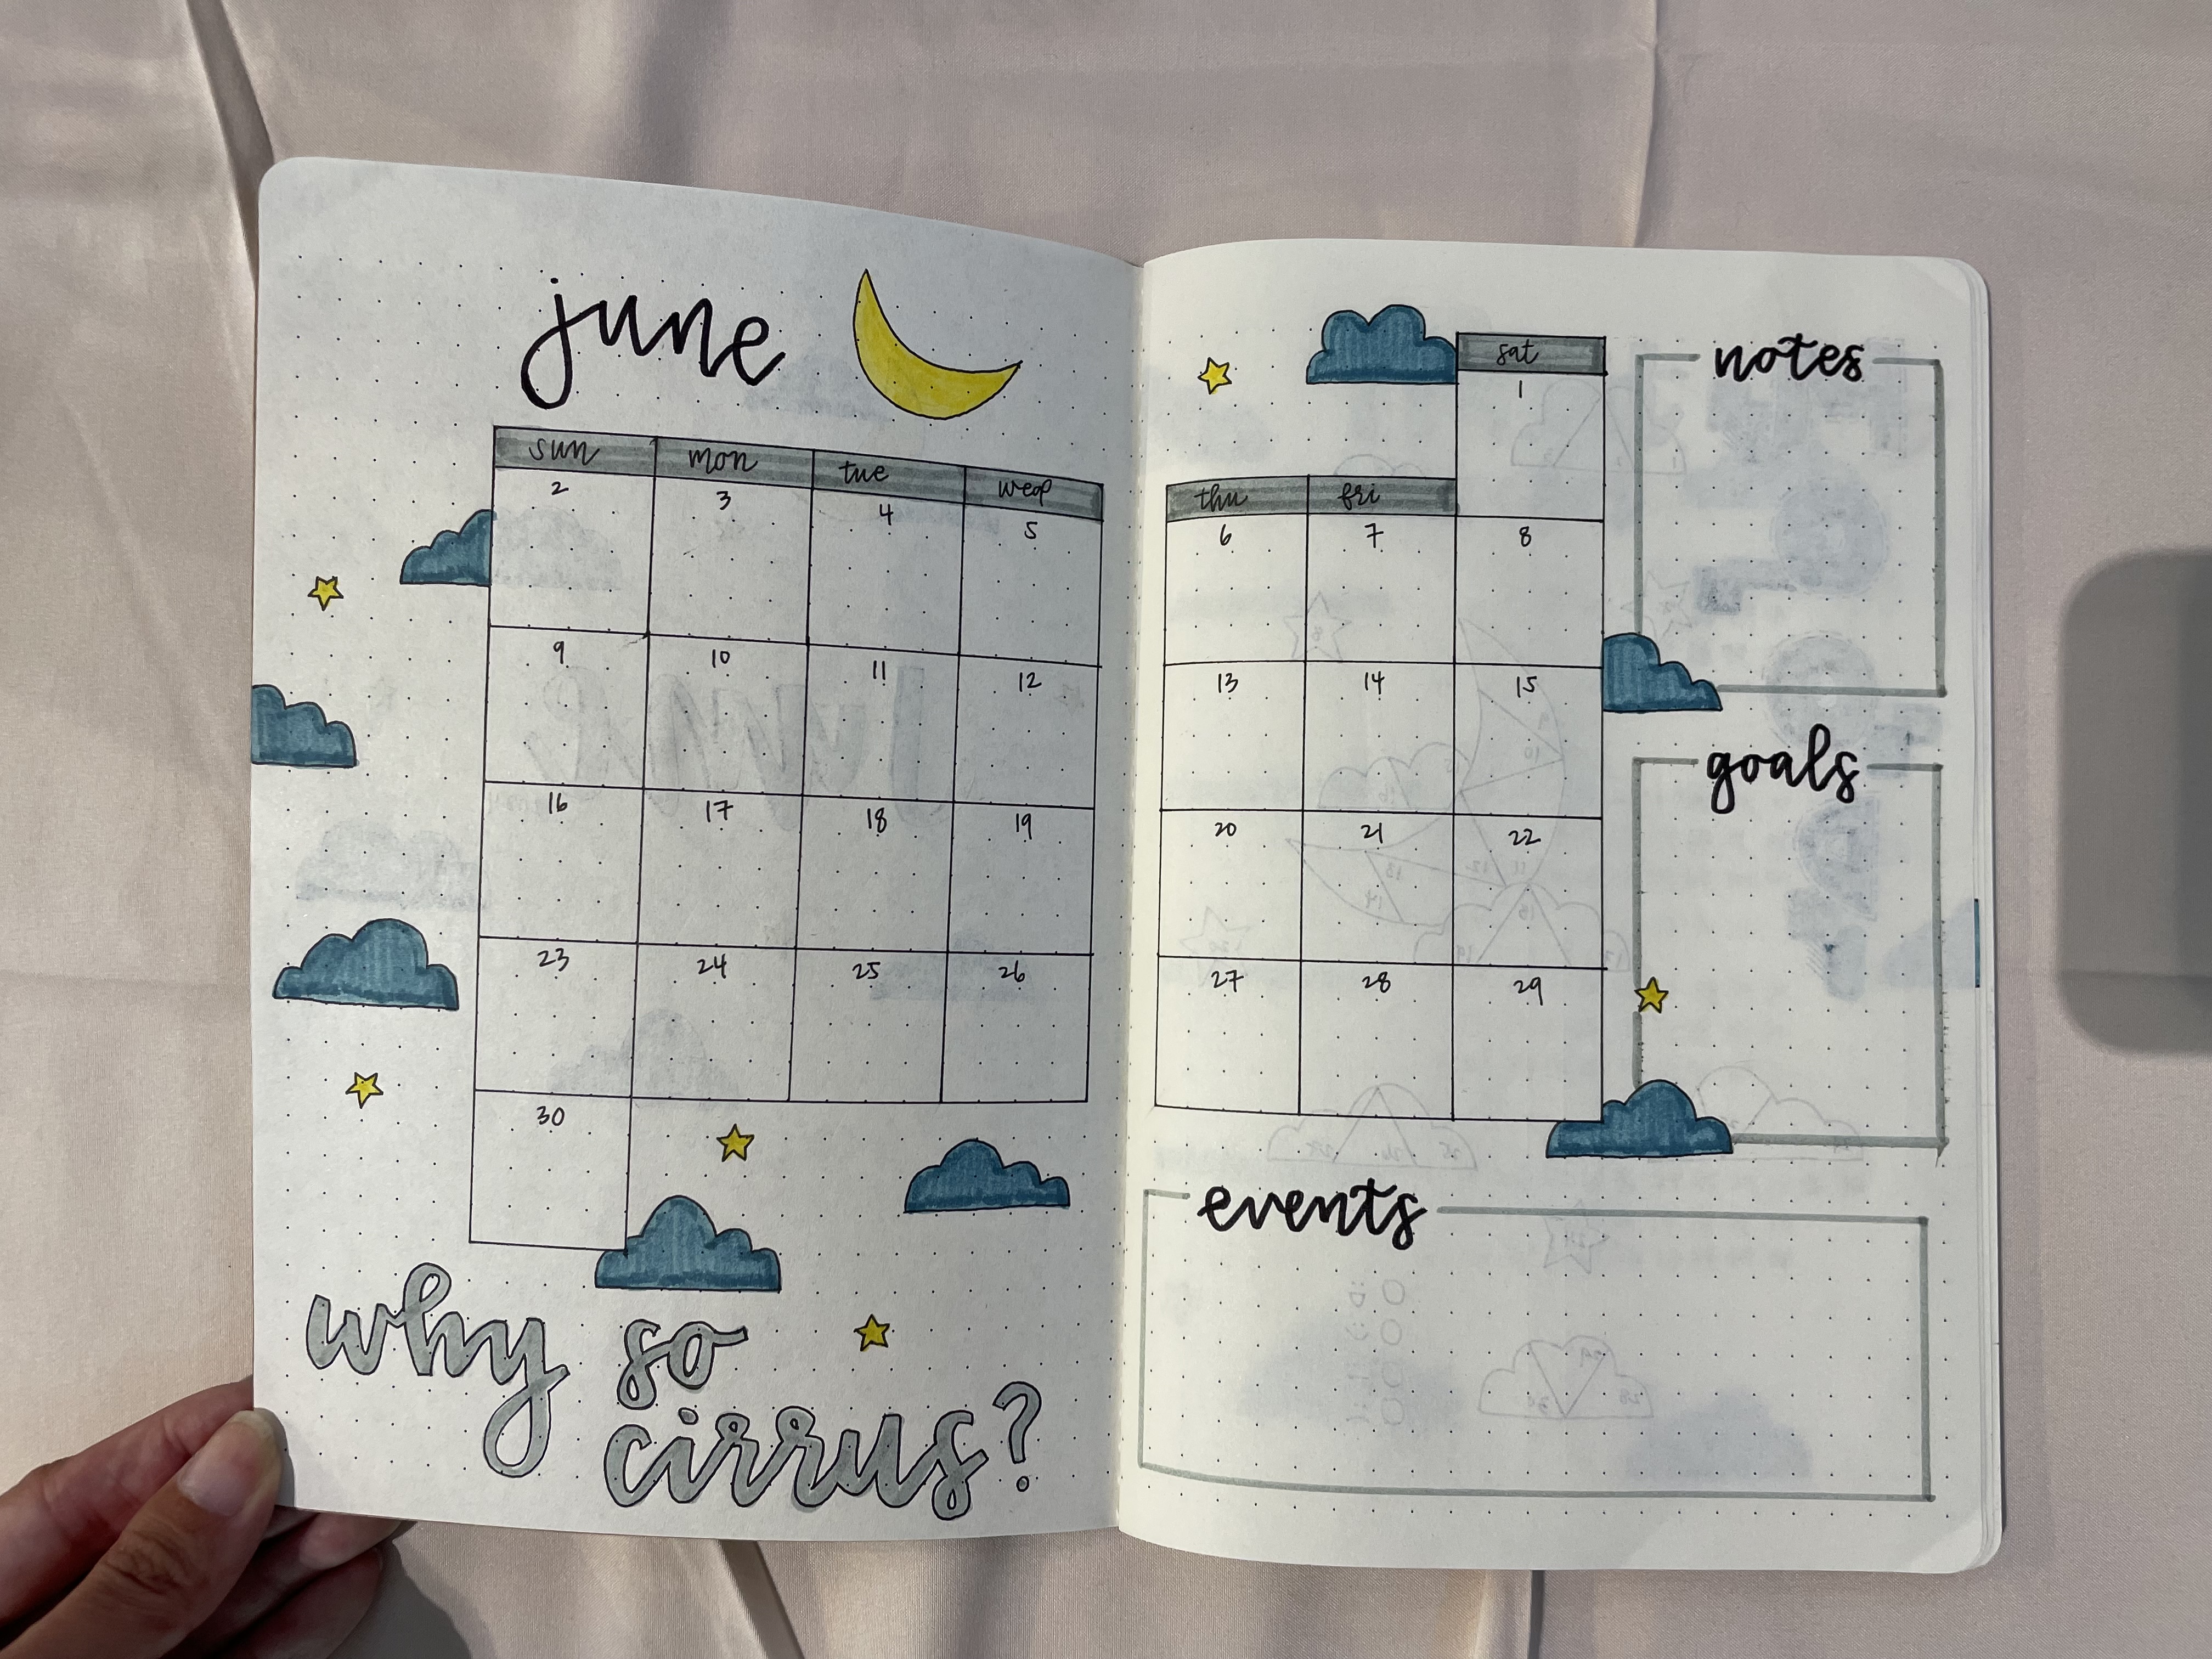 june
sun mon tue wed
2 3 4 5
9 10 11 12
16 17 18 19
23 24 25 26
30
why so
cirrus?
sat
1
thu fri
6 7 8
13 14 15
20 21 22
27 28 29
notes
goals
events